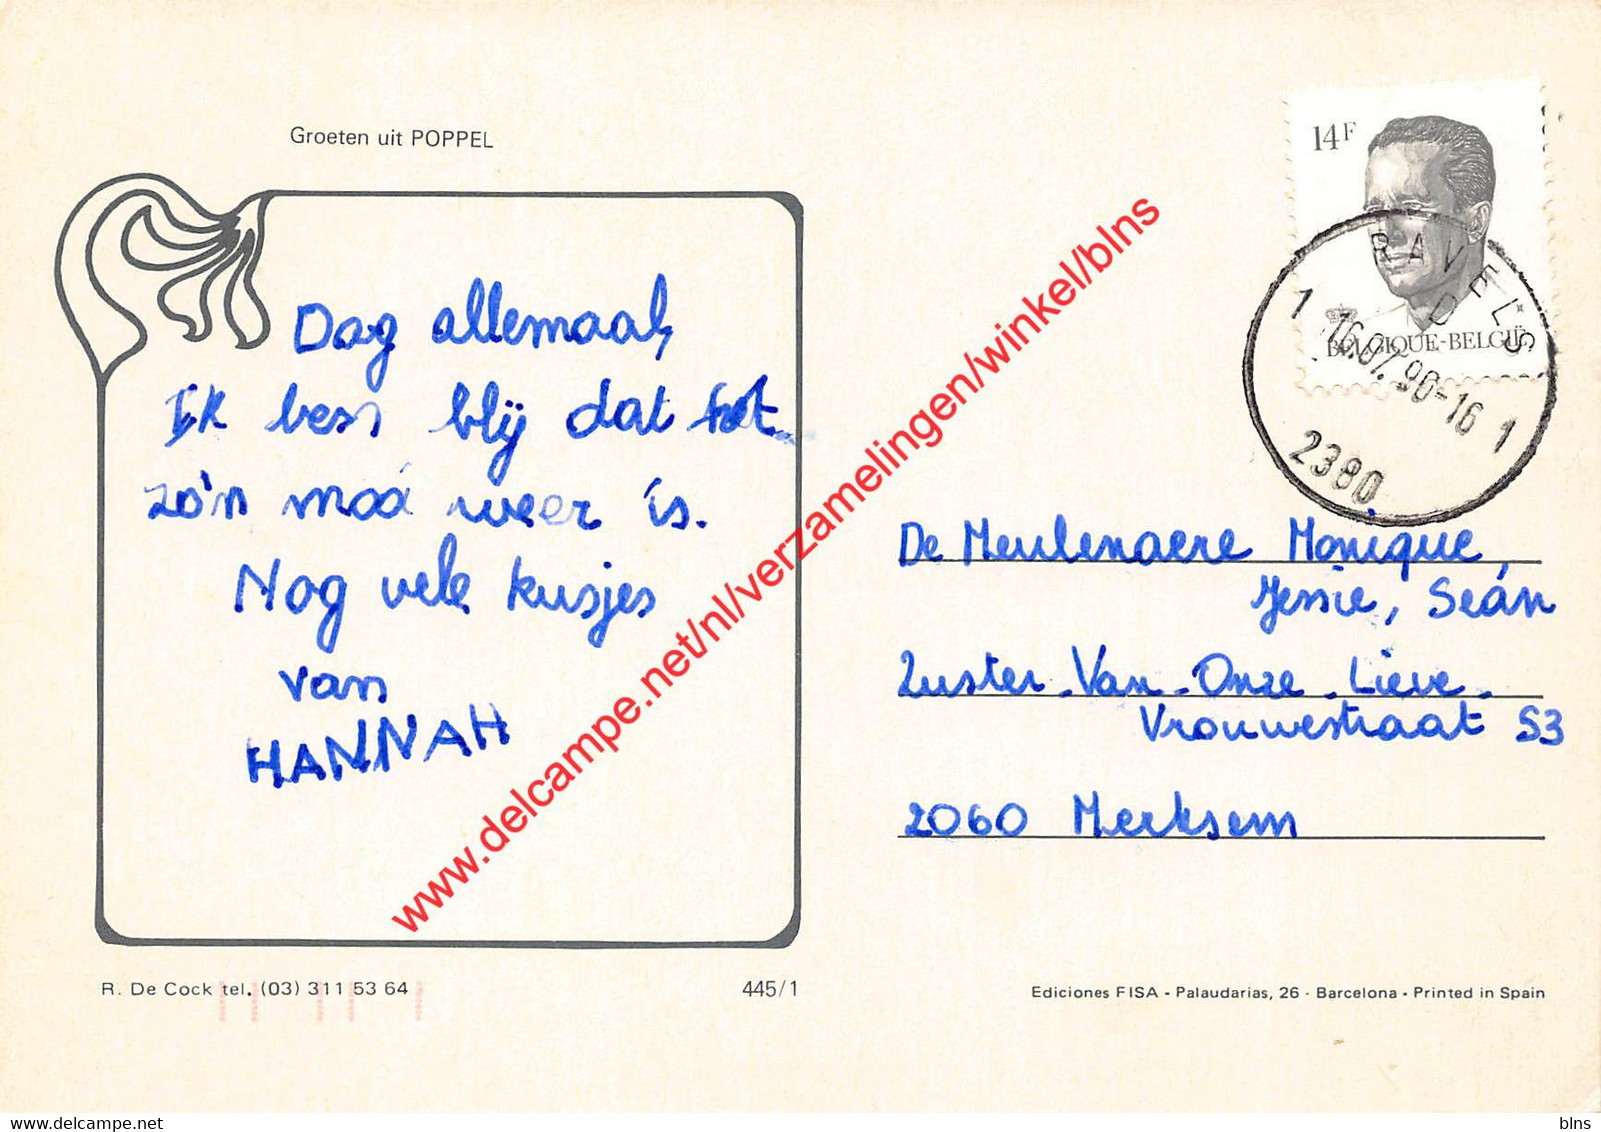 Groeten uit POPPEL
Dag allemaal,
Ik ben blij dat het
zo'n moa weer is.
Nog vele kusjes
van
HANNAH
R. De Cock tel. (03) 311 53 64
445/1
14F
BELGIQUE-BELGIË
RAVELS
D
1 16.07.90-16 1
2380
De Meulenaere Monique,
Jessie, Seán
Zuster-Van-Onze-Lieve-
Vrouwestraat 53
2060 Merksem
Ediciones FISA - Palaudarias, 26 - Barcelona - Printed in Spain
www.delcampe.net/nl/verzamelingen/winkel/blns
www.delcampe.net
blns